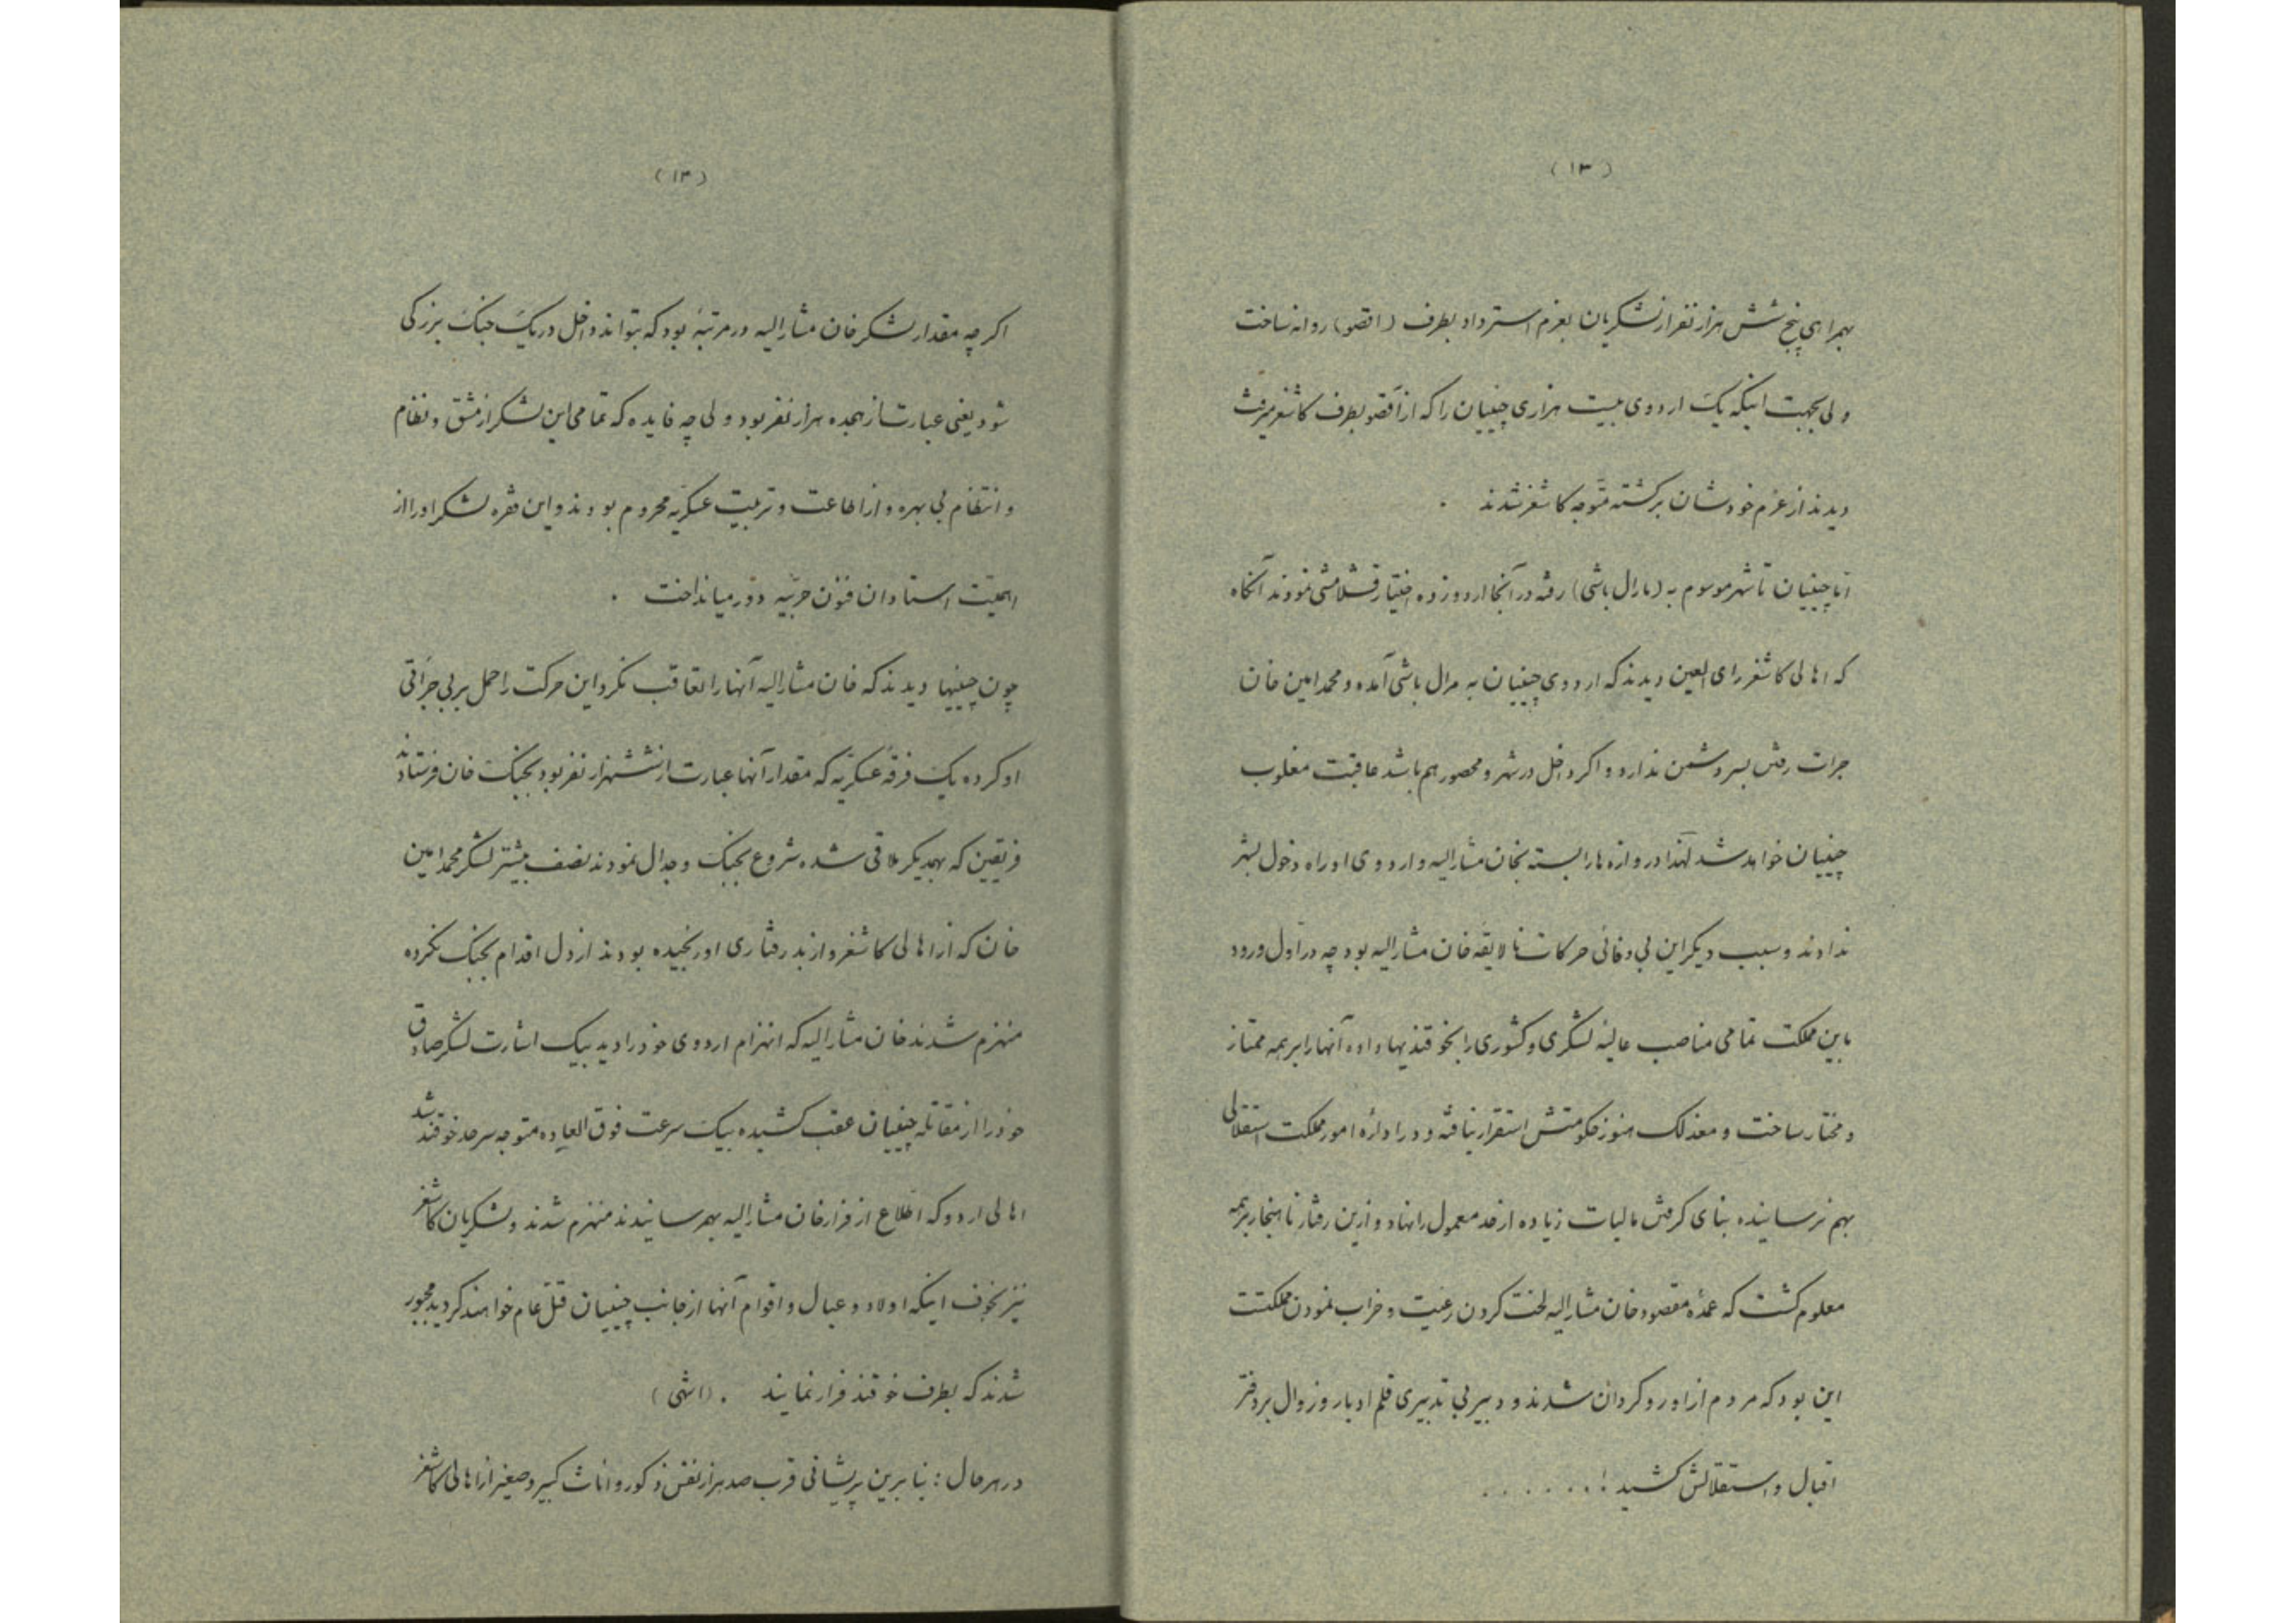 (۱۳)
بهمراهی پنج شش هزار نفر از لشکریان بعزم استرداد بطرف (اقصو) روانه ساخت
ولی بجهت اینکه یک اردوی بیست هزاری چینیان را که از آقصو بطرف کاشغر میرفت
دیدند از عزم خودشان برگشته متوجه کاشغر شدند .
اما چینیان تا شهر موسوم به (مارال باشی) رفته در آنجا اردو زده اختیار قشلامشی نمودند آنگاه
که اهالی کاشغر رای العین دیدند که اردوی چینیان به مرال باشی آمده و محمد امین خان
جرات رفتن بسر دشمن ندارد و اگر داخل در شهر و محصور هم باشد عاقبت مغلوب
چینیان خواهد شد لهذا دروازه ها را بسته بخان مشارالیه و اردوی او راه دخول بشهر
ندادند و سبب دیگر این بی وفائی حرکات نالایقه خان مشارالیه بود چه در اول ورود
باین مملکت تمامی مناصب عالیهٔ لشگری و کشوری را بخوقندیها داده آنها را بر همه ممتاز
و مختار ساخت و معذلک هنوز حکومتش استقرار نیافته و در ادارهٔ امور مملکت استقلالی
بهم نرسانیده بنای گرفتن مالیات زیاده از حد معمول را نهاد و ازین رفتار ناهنجار بر همه
معلوم گشت که عمدهٔ مقصود خان مشارالیه لخت کردن رعیت و خراب نمودن مملکتست
این بود که مردم از او روگردان شدند و دبیر بی تدبیری قلم ادبار و زوال بر دفتر
اقبال و استقلالش کشید ! . . . . . .
(۱۴)
اگر چه مقدار لشکر خان مشارالیه در مرتبهٔ بود که بتواند داخل در یک جنگ بزرگی
شود یعنی عبارت از هجده هزار نفر بود ولی چه فایده که تمامی این لشکر از مشق و نظام
و انتظام بی بهره و از اطاعت و تربیت عسکریه محروم بودند و این فقره لشکر او را از
اهمیت استادان فنون حربیه دور میانداخت .
چون چینیها دیدند که خان مشارالیه آنها را تعاقب نکرد این حرکت را حمل بر بی جرأتی
او کرده یک فرقهٔ عسکریّه که مقدار آنها عبارت از ششهزار نفر بود بجنگ خان فرستادند
فریقین که بهمدیگر ملاقی شده شروع بجنگ و جدال نمودند نصف بیشتر لشکر محمد امین
خان که از اهالی کاشغر و از بدرفتاری او رنجیده بودند از دل اقدام بجنگ نکرده
منهزم شدند خان مشارالیه که انهزام اردوی خود را دید بیک اشارت لشکر صادق
خود را از مقابلهٔ چینیان عقب کشیده بیک سرعت فوق العاده متوجه سرحد خوقند شد
اهالی اردو که اطلاع از فرار خان مشارالیه بهم رسانیدند منهزم شدند و لشکریان کاشغر
نیز بخوف اینکه اولاد و عیال و اقوام آنها از جانب چینیان قتل عام خواهند گردید مجبور
شدند که بطرف خوقند فرار نمایند . (انتهی)
در هر حال : بنا برین پریشانی قرب صد هزار نفس ذکور و اناث کبیر و صغیر از اهالی کاشغر